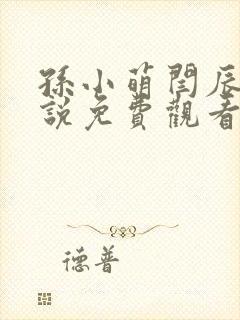 孫小萌閆辰
說免費觀看
德普